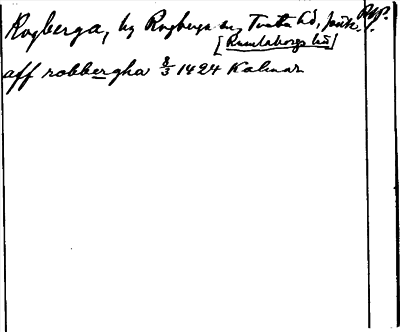 Rogberga, by Rogberga sn, Tveta hd, Jönk. Rpp.
[Rumlaborgs hd]
aff robbergha 8/3 1424 Kalmar